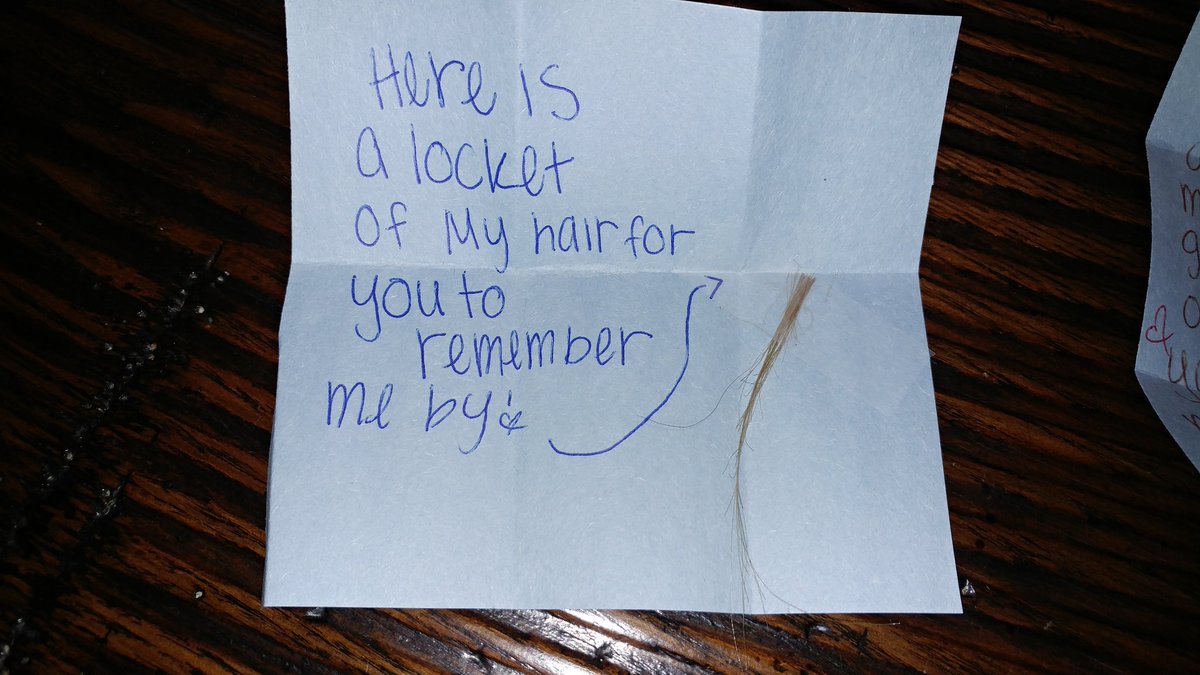 Here is
a locket
of My hair for
you to
remember
me by!